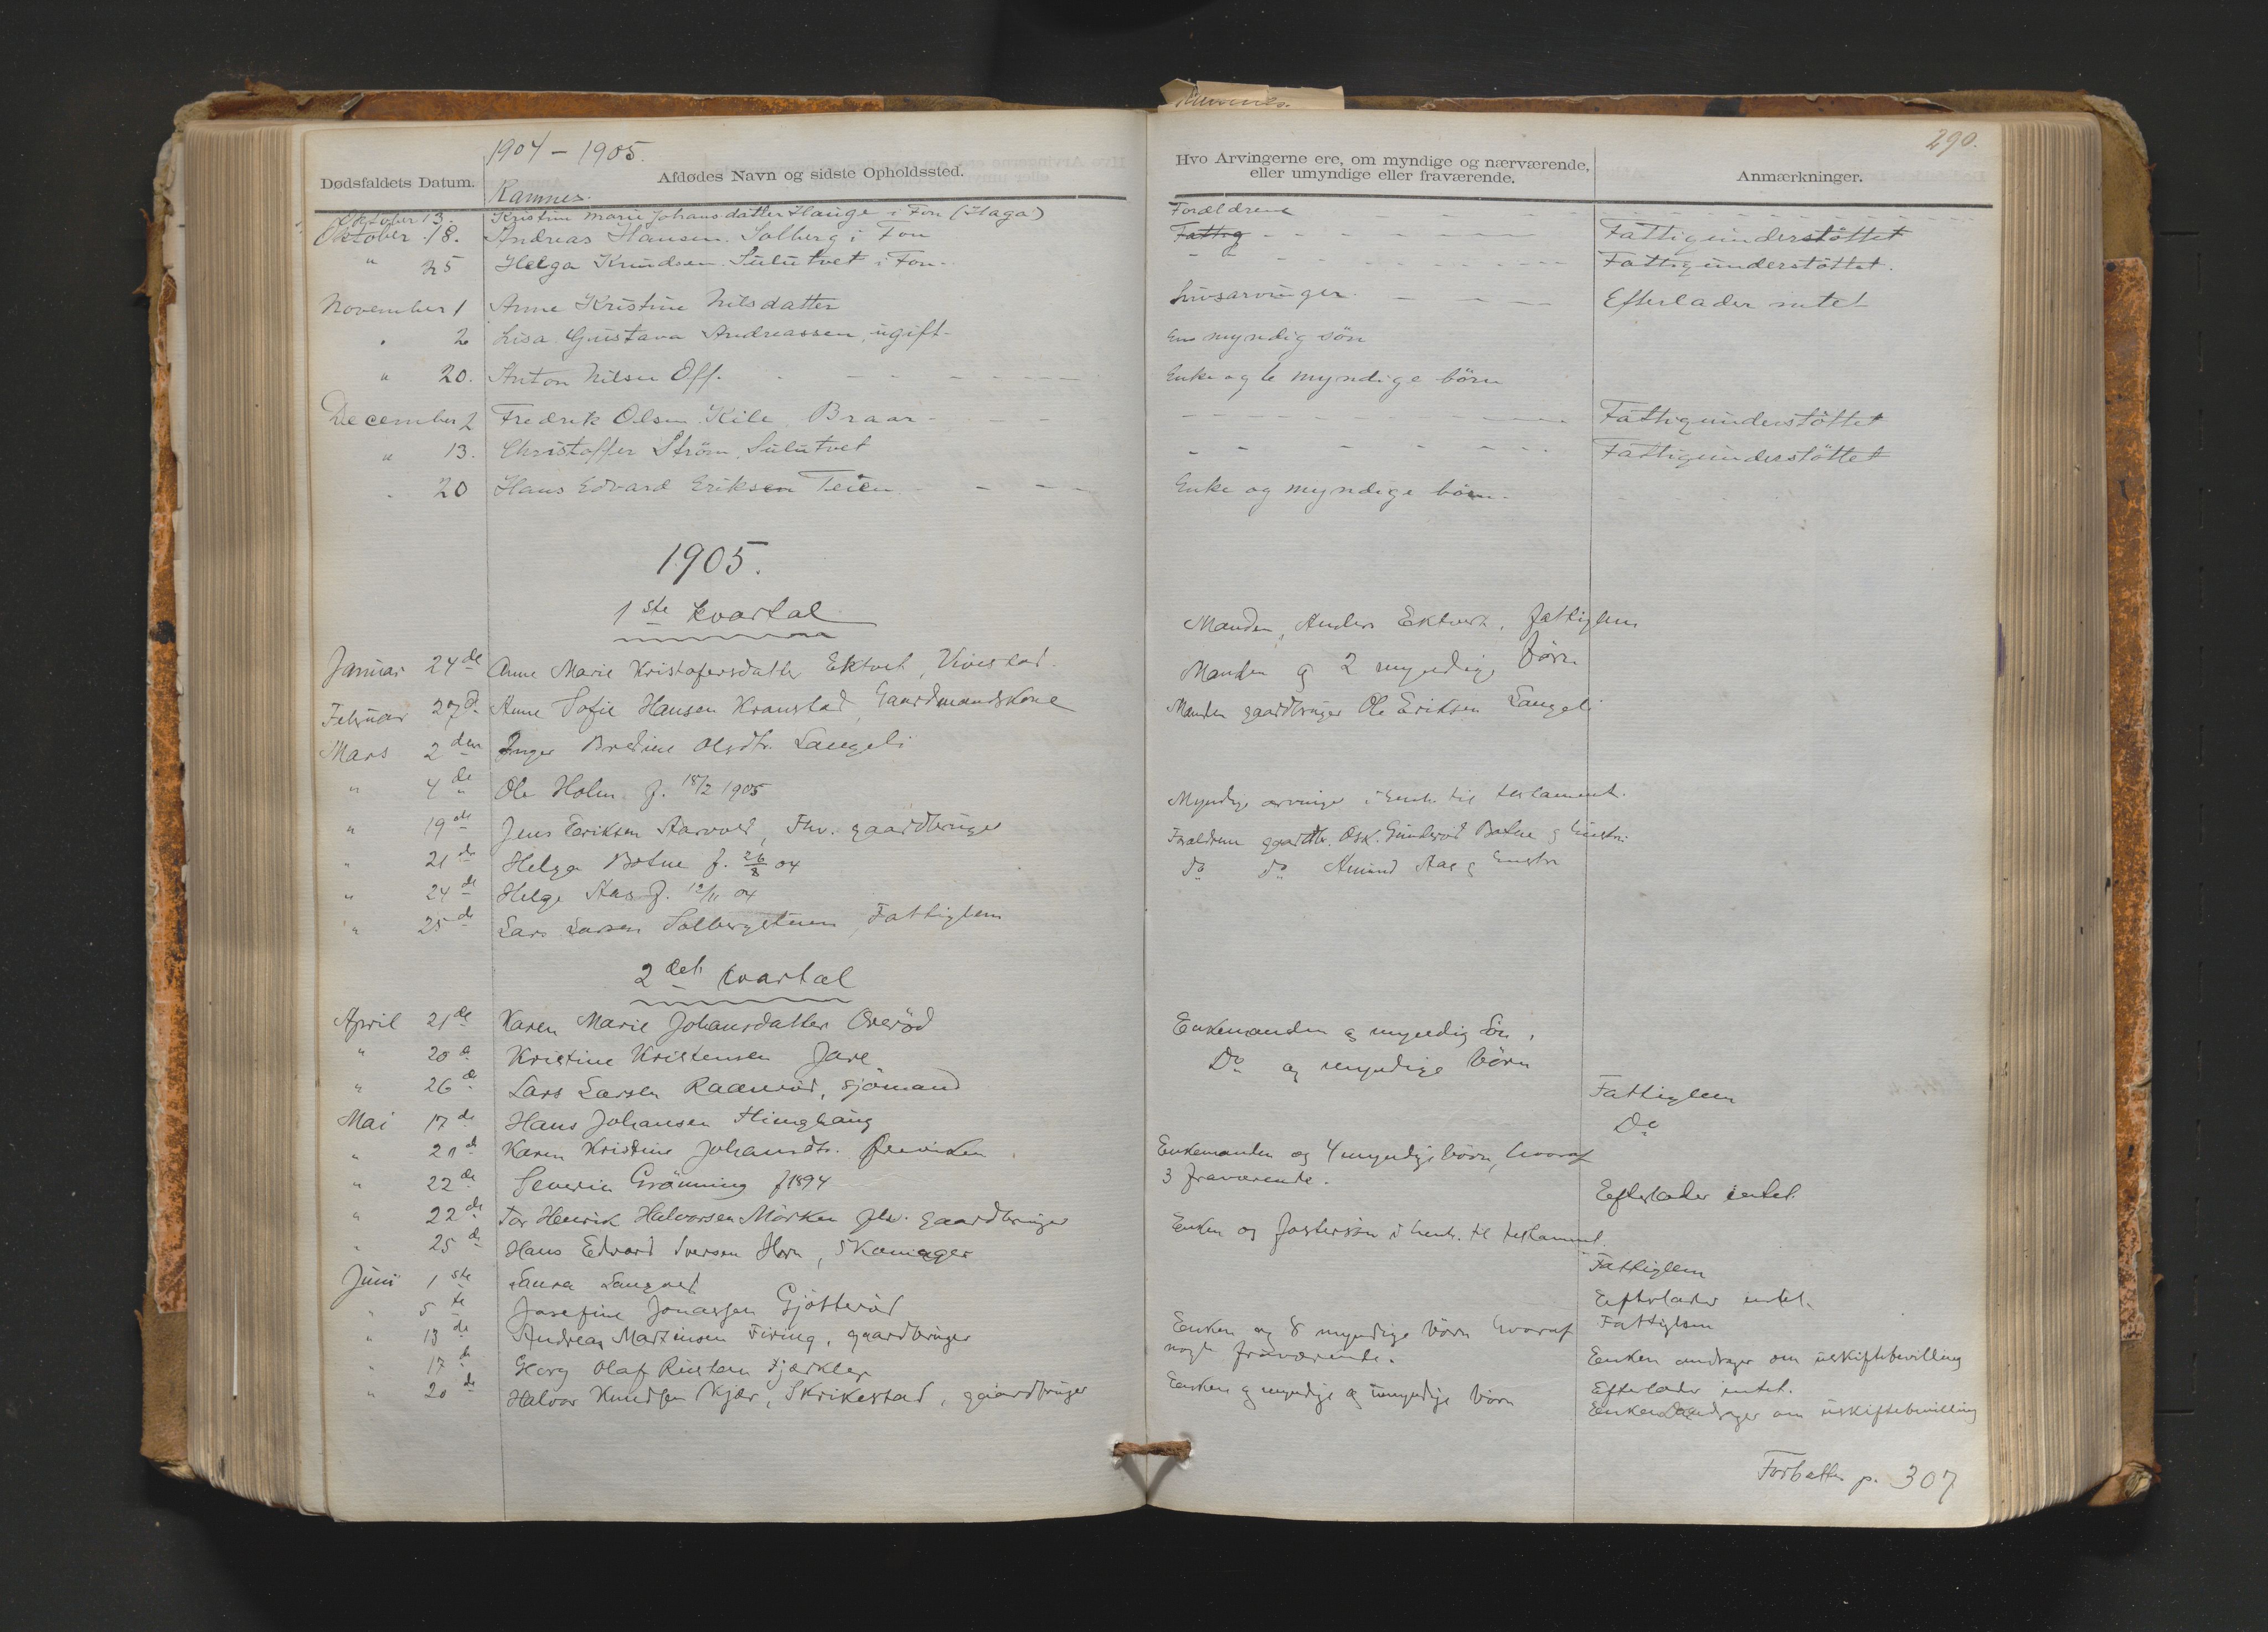 Ramnes.
290.
1904 - 1905.
Dødsfaldets Datum. Afdødes Navn og sidste Opholdssted. Hvo Arvingerne ere, om myndige og nærværende, eller umyndige eller fraværende. Anmærkninger.
Ramnes.
Oktober 13. Kristine Marie Johansdatter Hauge i Fon (Haga) Forældrene
Oktober 18. Andreas Hansen Solberg i Fon Fattig Fattigunderstöttet
" 25 Helga Knudsen Sulutvet i Fon Fattigunderstöttet.
November 1 Anne Kristine Nilsdatter Livsarvinger Efterlader intet
" 2 Lisa Gustava Andreassen, ugift En myndig sön
" 20. Anton Nilsen Off. Enke og 6 myndige börn
December 2 Fredrik Olsen Kile, Braar Fattigunderstöttet
" 13. Christoffer Ström, Sulutvet Fattigunderstöttet
" 20 Hans Edvard Eriksen Teien Enke og myndige börn.
1905.
1ste kvartal
Januar 24de Anne Marie Kristofersdatter Ektvet, Vivestad. Manden, Anders Ektvert, fattiglem
Februar 27de Anne Sofie Hansen Kranstad, Gaardmandskone Manden og 2 myndige börn
Mars 2den Inger Bredine Olsdtr. Langeli Manden gaardbruger Ole Eriksen Langeli
" 4de Ole Holm f. 18/2 1905
" 19de Jens Eriksen Aarvold, Fhv. gaardbruger Myndige arvinger i henh. til testament.
" 21de Helga Botne f. 26/8 04 Forældrene gaardbr. Osk. Gunderød Botne og hustru.
" 24de Helge Aas f. 12/11 04 do do Amund Aas og hustru
" 25de Lars Larsen Solbergstuen, Fattiglem
2det kvartal
April 21de Karen Marie Johansdatter Overöd Enkemanden og myndig sön.
" 20de Kristine Kristensen Jare Do og myndige börn
" 26de Lars Larsen Raaneröd, sjömand Fattiglem
Mai 17de Hans Johansen Hinghaug Do
" 21de Karen Kristine Johansdtr. Enkemanden og 4 myndige börn, hvoraf
3 fraværende.
" 22de Severin Grönning f. 1894 Efterlader intet.
" 22de Tor Henrik Halvorsen Mörken fhv. gaardbruger Enken og fostersön i henh. til testament.
" 25de Hans Edvard Iversen Horn, Skomager Fattiglem
Juni 1ste Laura Langved Efterlader intet.
" 5te Josefine Jonassen Gjötteröd Fattiglem
" 13de Andreas Martinsen Firing, gaardbruger Enken og 8 myndige börn hvoraf
nogle fraværende. Enken andrager om uskiftebevilling
" 17de Georg Olaf Fjærkler Efterlader intet.
" 20de Halvor Knudsen Kjær, Skrikestad, gaardbruger Enken og myndige og umyndige börn Enken andrager om uskiftebevilling
Fortsættes p. 307